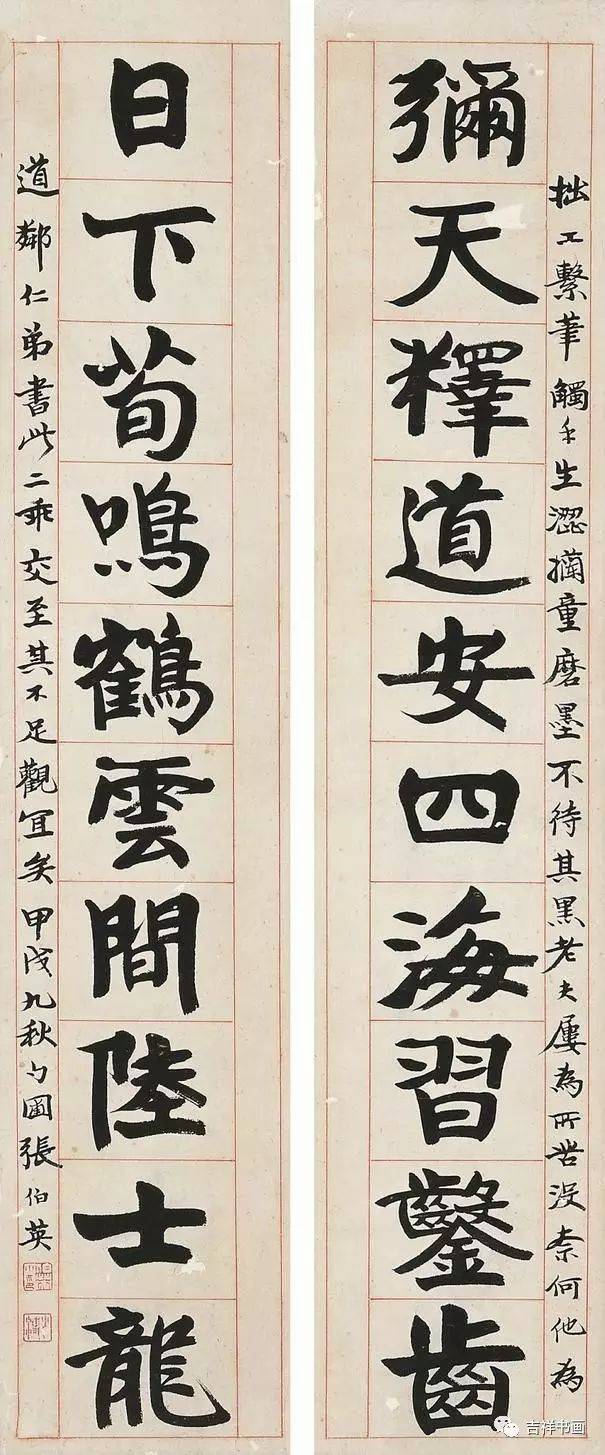 彌天釋道安四海習鑿齒
拙工繫筆觸手生澀 童磨墨不待其黑老夫屢為所苦沒柰何他為
日下荀鳴鶴雲間陸士龍
道鄰仁弟書此二乖交至其不足觀宜矣甲戌九秋勺圃張伯英
吉祥书画